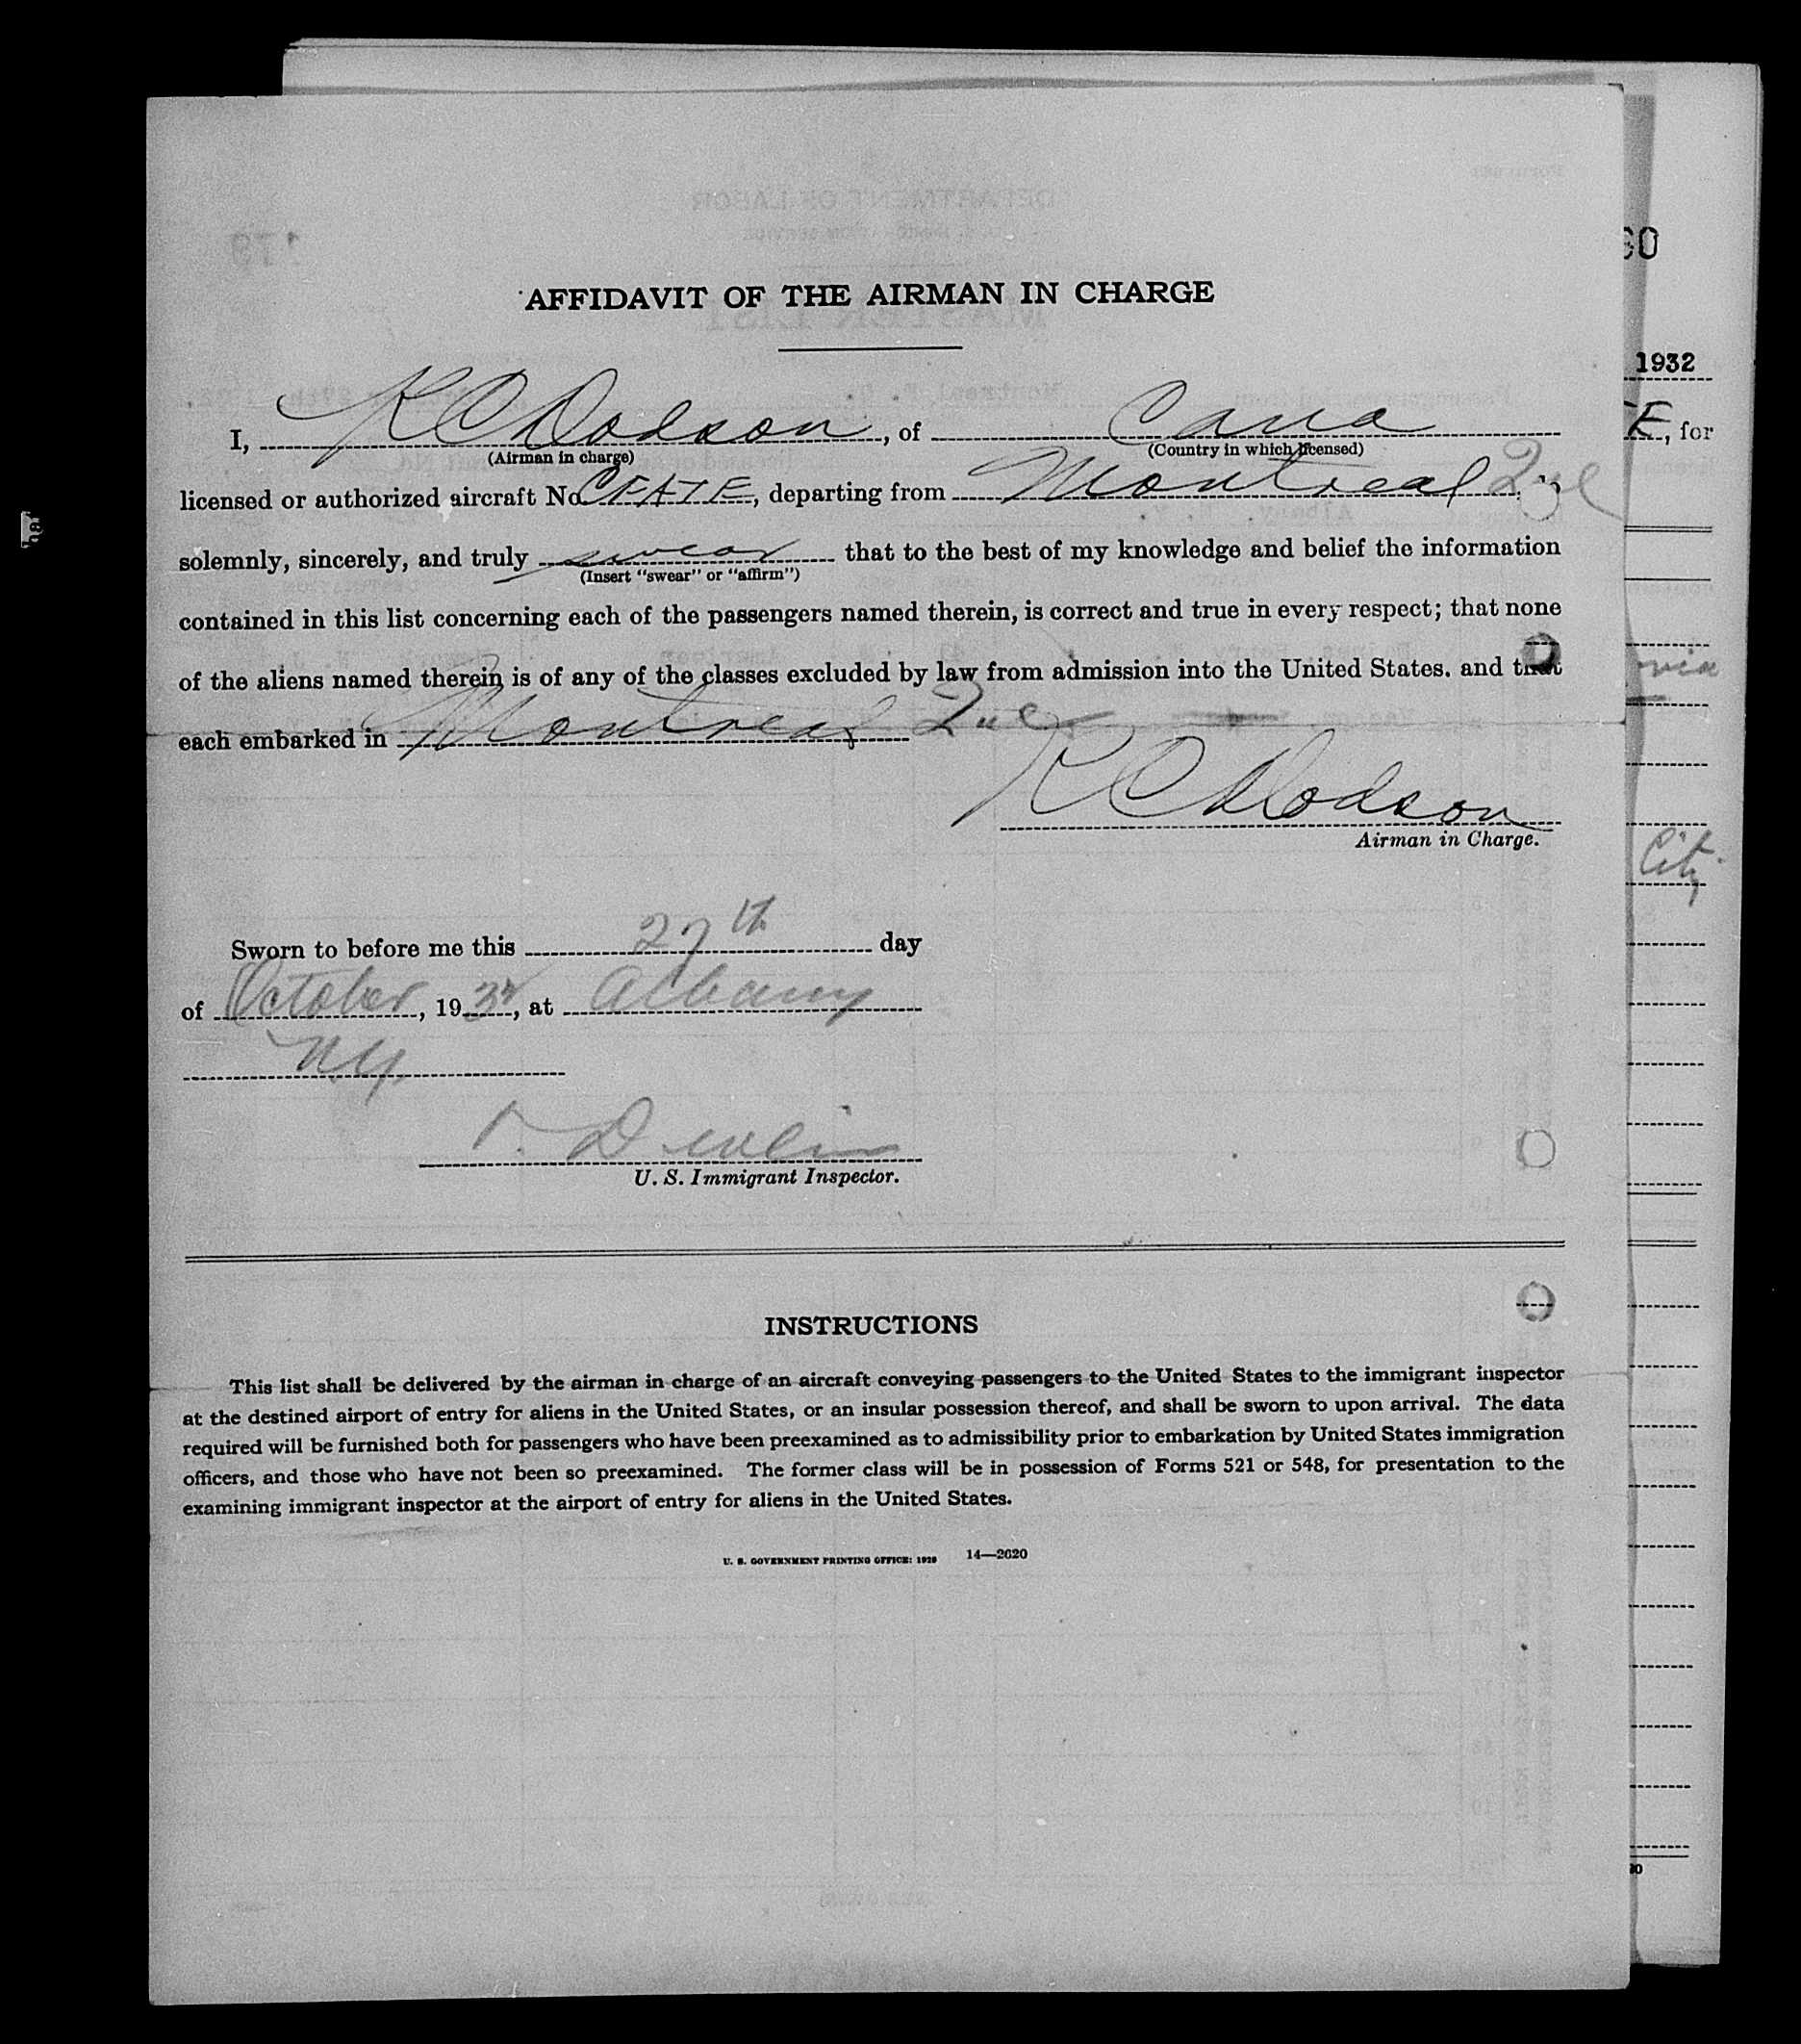 AFFIDAVIT OF THE AIRMAN IN CHARGE
I, K C Dodson, of Cana
(Airman in charge) (Country in which licensed)
licensed or authorized aircraft No. CFATE, departing from Montreal Que
solemnly, sincerely, and truly swear that to the best of my knowledge and belief the information
(Insert "swear" or "affirm")
contained in this list concerning each of the passengers named therein, is correct and true in every respect; that none
of the aliens named therein is of any of the classes excluded by law from admission into the United States. and that
each embarked in Montreal Que
K C Dodson
Airman in Charge.
Sworn to before me this 27th day
of October, 1932, at Albany
N.Y.
Devlin
U. S. Immigrant Inspector.
INSTRUCTIONS
This list shall be delivered by the airman in charge of an aircraft conveying passengers to the United States to the immigrant inspector
at the destined airport of entry for aliens in the United States, or an insular possession thereof, and shall be sworn to upon arrival. The data
required will be furnished both for passengers who have been preexamined as to admissibility prior to embarkation by United States immigration
officers, and those who have not been so preexamined. The former class will be in possession of Forms 521 or 548, for presentation to the
examining immigrant inspector at the airport of entry for aliens in the United States.
U. S. GOVERNMENT PRINTING OFFICE: 1929 14—2020
1932
E, for
City